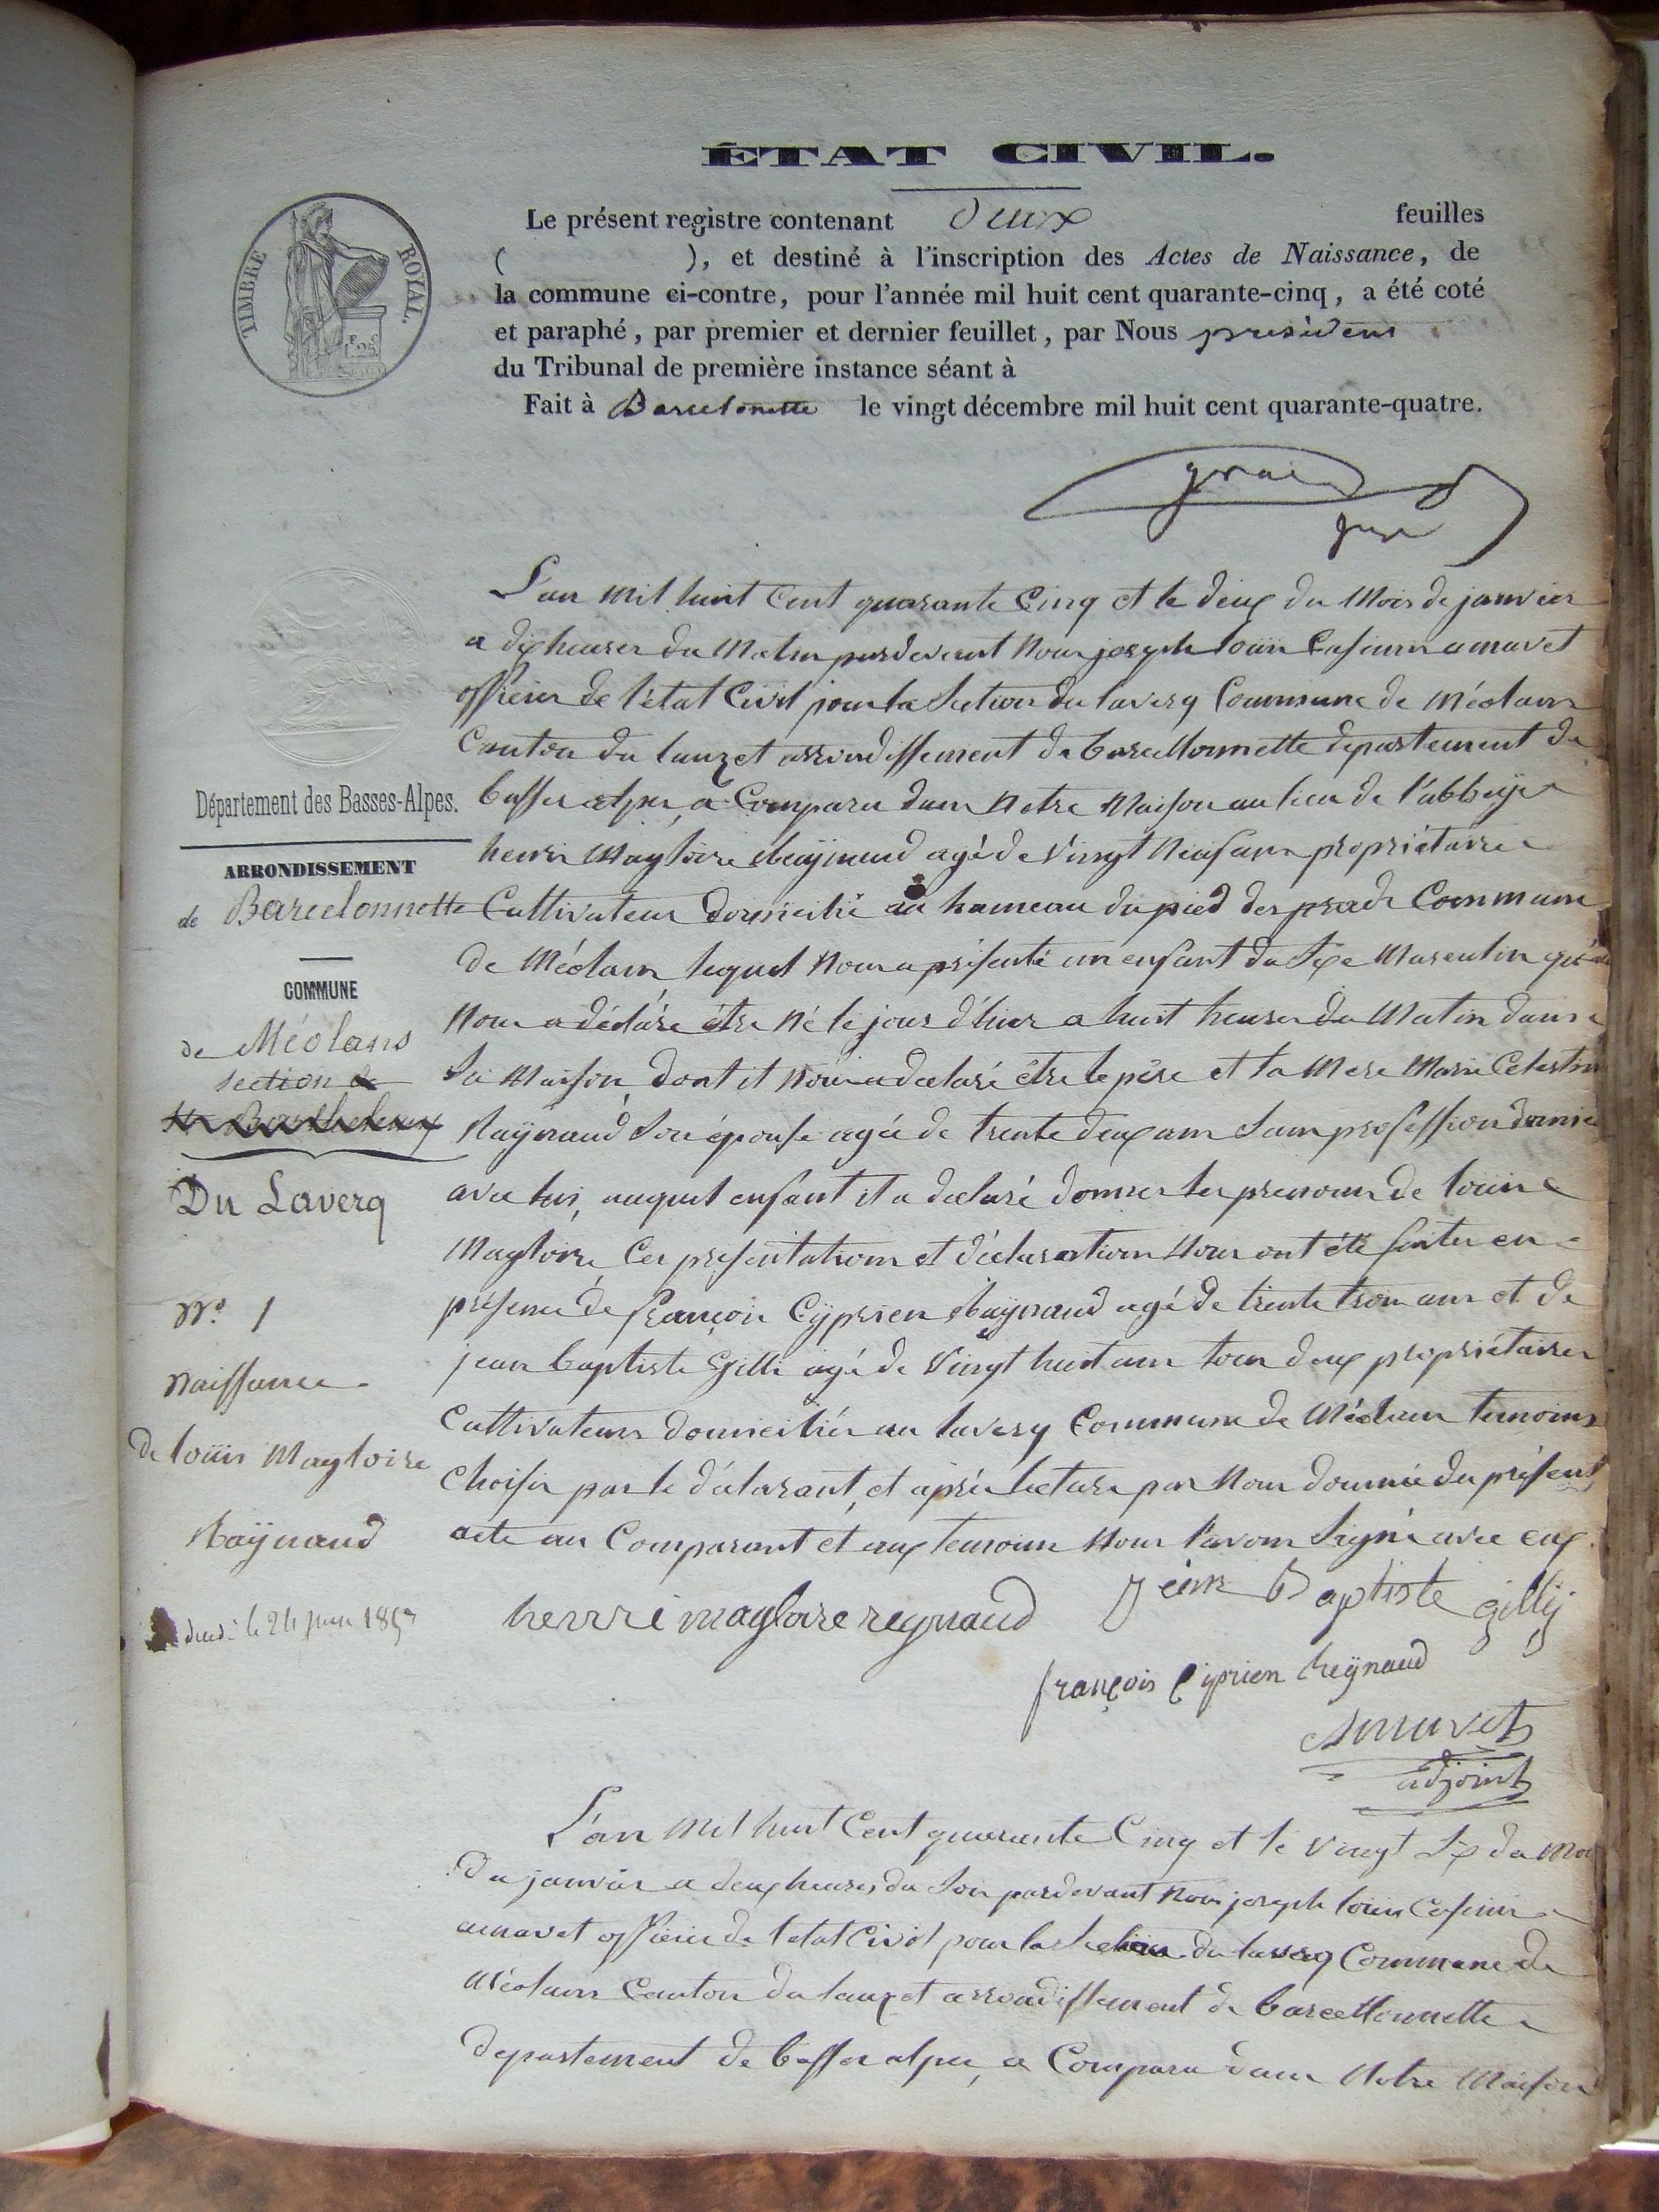 ÉTAT CIVIL.
TIMBRE ROYAL.
Le présent registre contenant deux feuilles
( ), et destiné à l'inscription des Actes de Naissance, de
la commune ci-contre, pour l'année mil huit cent quarante-cinq, a été coté
et paraphé, par premier et dernier feuillet, par Nous président
du Tribunal de première instance séant à
Fait à Barcelonette le vingt décembre mil huit cent quarante-quatre.
Département des Basses-Alpes.
ARRONDISSEMENT
de Barcelonnette
COMMUNE
de Méolans
section de
St Barthelemy
Du Laverq
No. 1
Naissance
de louis Magloire
Raÿnaud
le 24 juin 1857
L'an mil huit Cent quarante Cinq et le deux du Mois de janvier
a dix heures du Matin pardevant Nous joseph louis Casimir amavet
officier de l'état Civil pour la Section du laverq Commune de Méolans
Canton du lauzet arrondissement de barcellonnette departement de
basses alpes, a Comparu dans Notre Maison au lieu de l'abbaÿe
henri Magloire Raÿnaud agé de Vingt Neuf ans propriétaire
Cultivateur domicilié au hameau du pied des prads Commune
de Méolans, lequel Nous a présenté un enfant du Sexe Masculin qu'il
Nous a déclaré être Né le jour d'hier a huit heures du Matin dans
Sa Maison, dont il Nous a declaré être le père et la Mere Marie Celestine
Raÿnaud Son épouse agée de trente deux ans Sans profession
avec lui, auquel enfant il a declaré donner les prenoms de louis
Magloire, Ces présentations et déclaration Nous ont été faites en
présence de françois Cÿprien Raÿnaud agé de trente trois ans et de
jean baptiste Gilli agé de Vingt huit ans tous deux propriétaires
Cultivateurs domiciliés au laverq Commune de Méolans temoins
Choisis par le déclarant, et après lecture par Nous donnée du présent
acte au Comparant et aux temoins Nous l'avons Signé avec eux
henri magloire reynaud
baptiste gillÿ
françois Cÿprien Reÿnaud
Amavet
adjoint
L'an Mil huit Cent quarante Cinq et le Vingt Six du Mois
de janvier a deux heures du Soir pardevant Nous joseph louis Casimir
amavet officier de l'etat Civil pour la Section du laverq Commune de
Méolans Canton du lauzet arrondissement de barcellonnette
departement de basses alpes, a Comparu dans Notre Maison